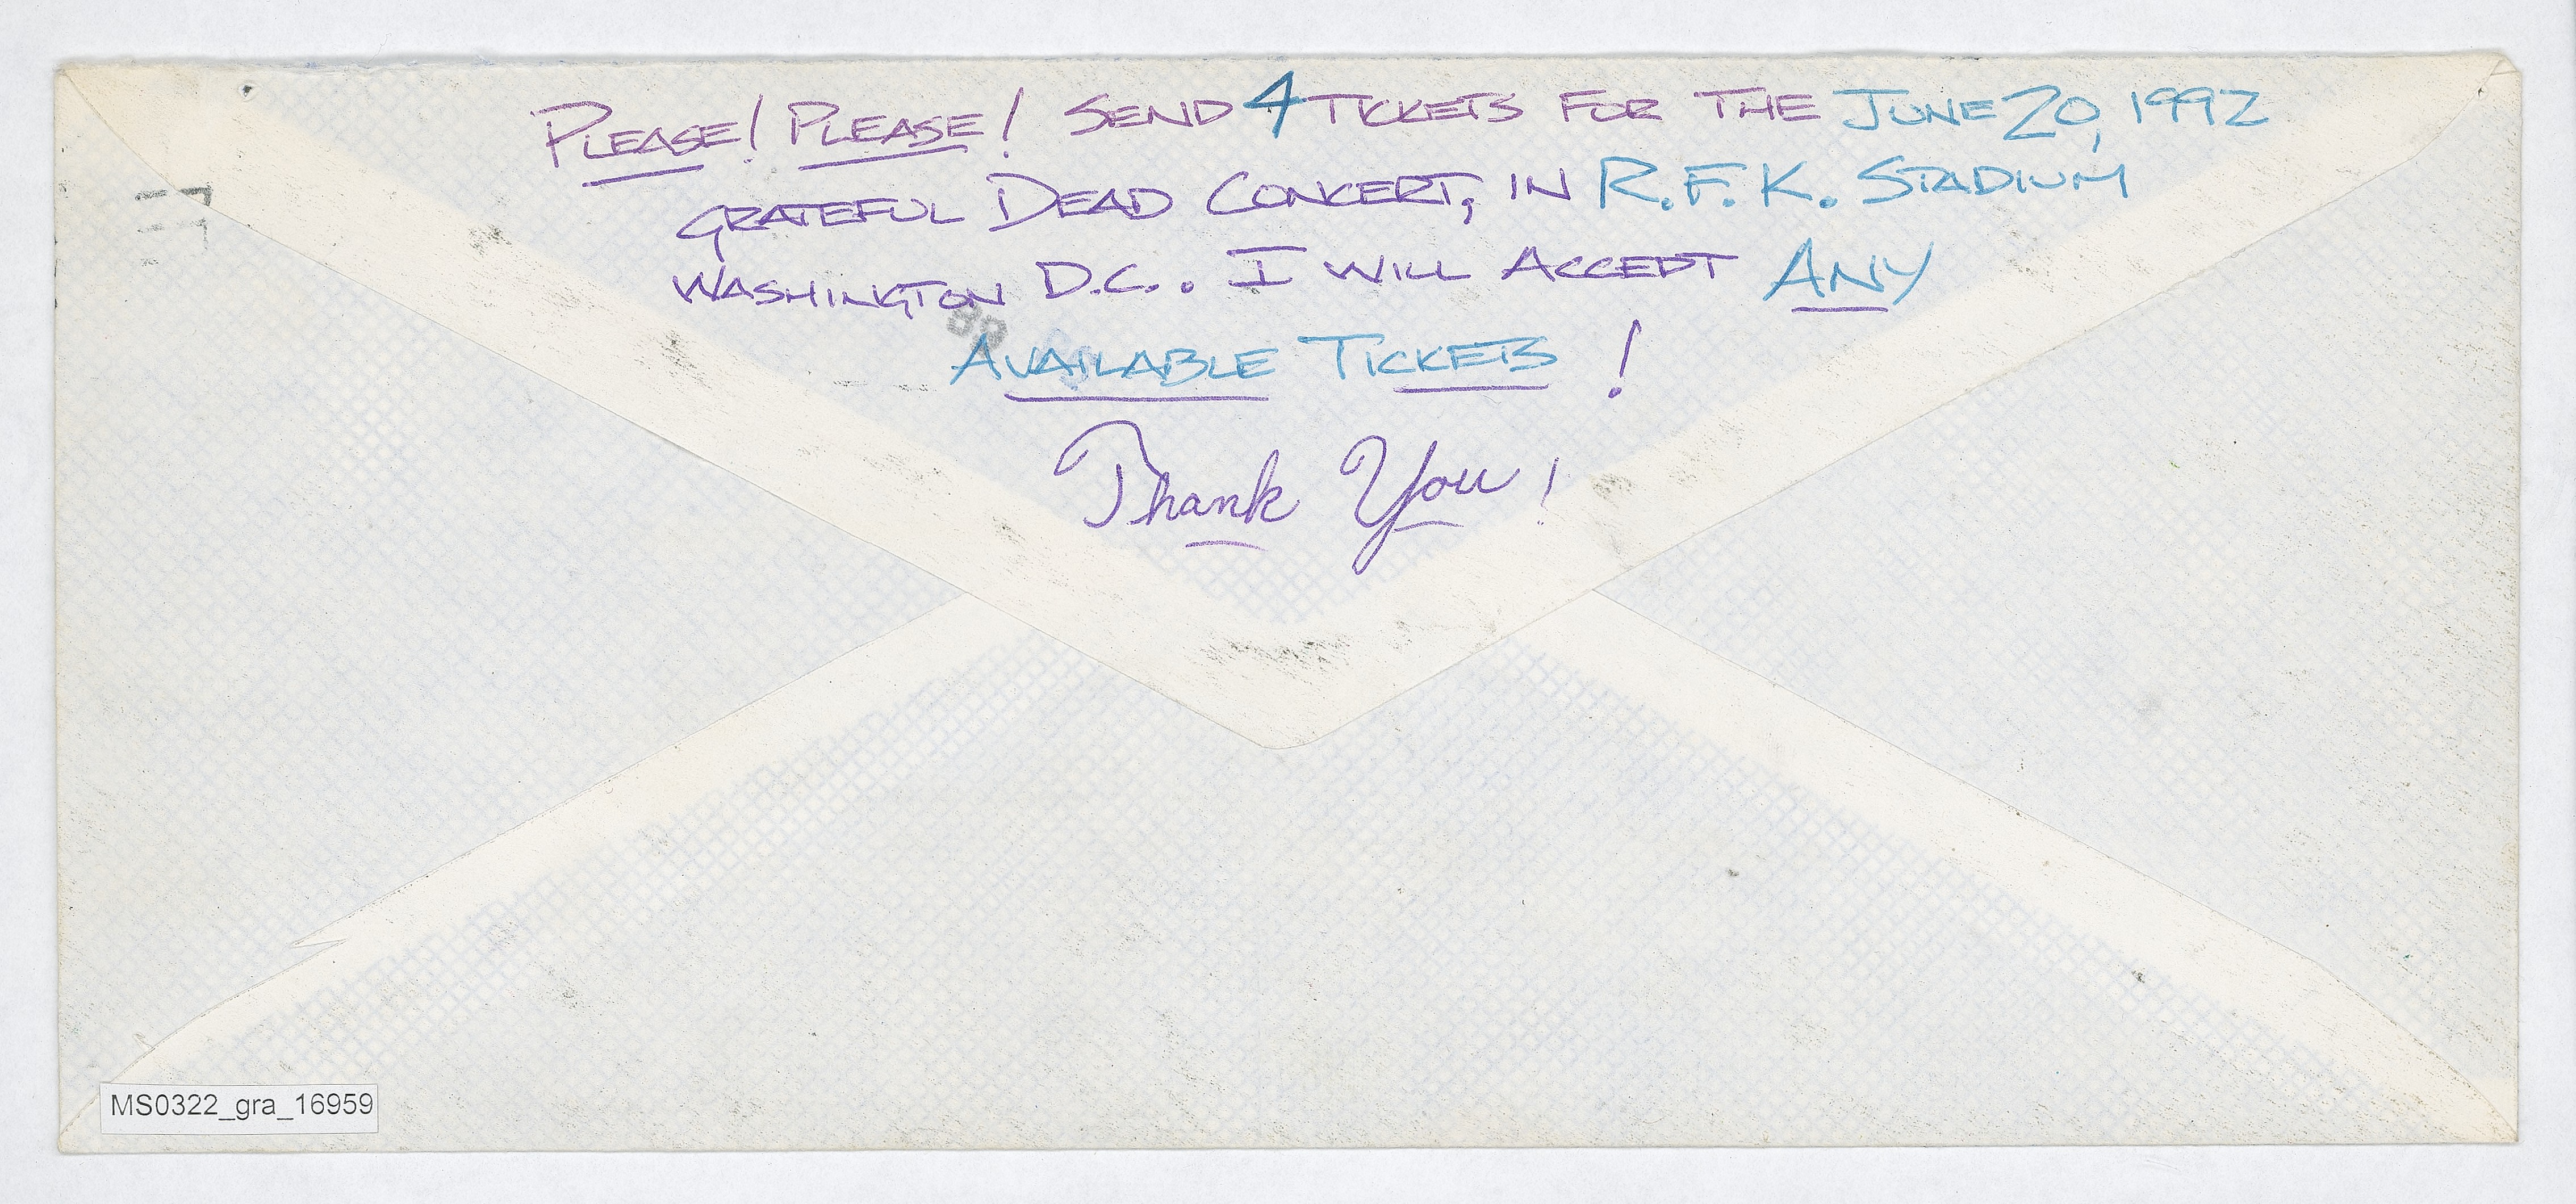 PLEASE! PLEASE! SEND 4 TICKETS FOR THE JUNE 20, 1992
GRATEFUL DEAD CONCERT, IN R.F.K. STADIUM
WASHINGTON D.C.. I WILL ACCEPT ANY
AVAILABLE TICKETS!
Thank You!
MS0322_gra_16959